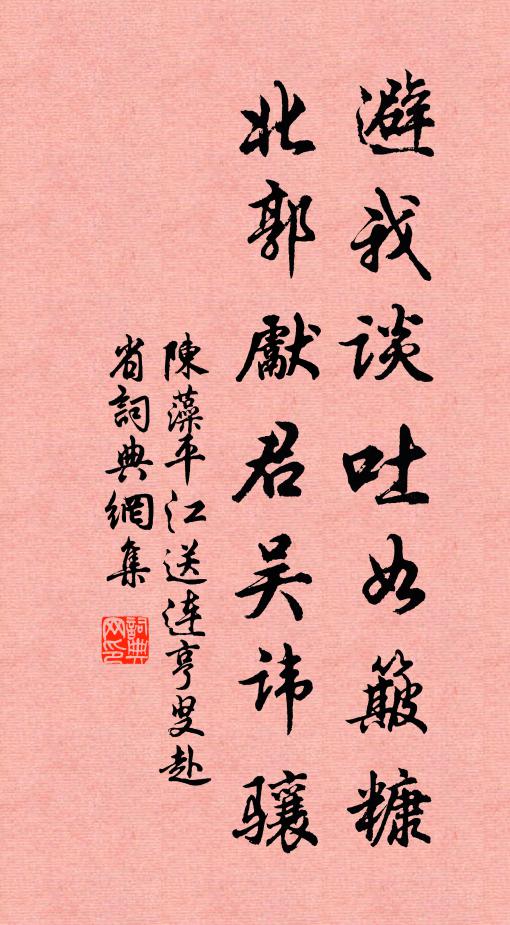 避我談吐如簸糠
北郭獻君吴讳驤
陳藻平江送连亨叟赴
省詞典網集
詞典网印